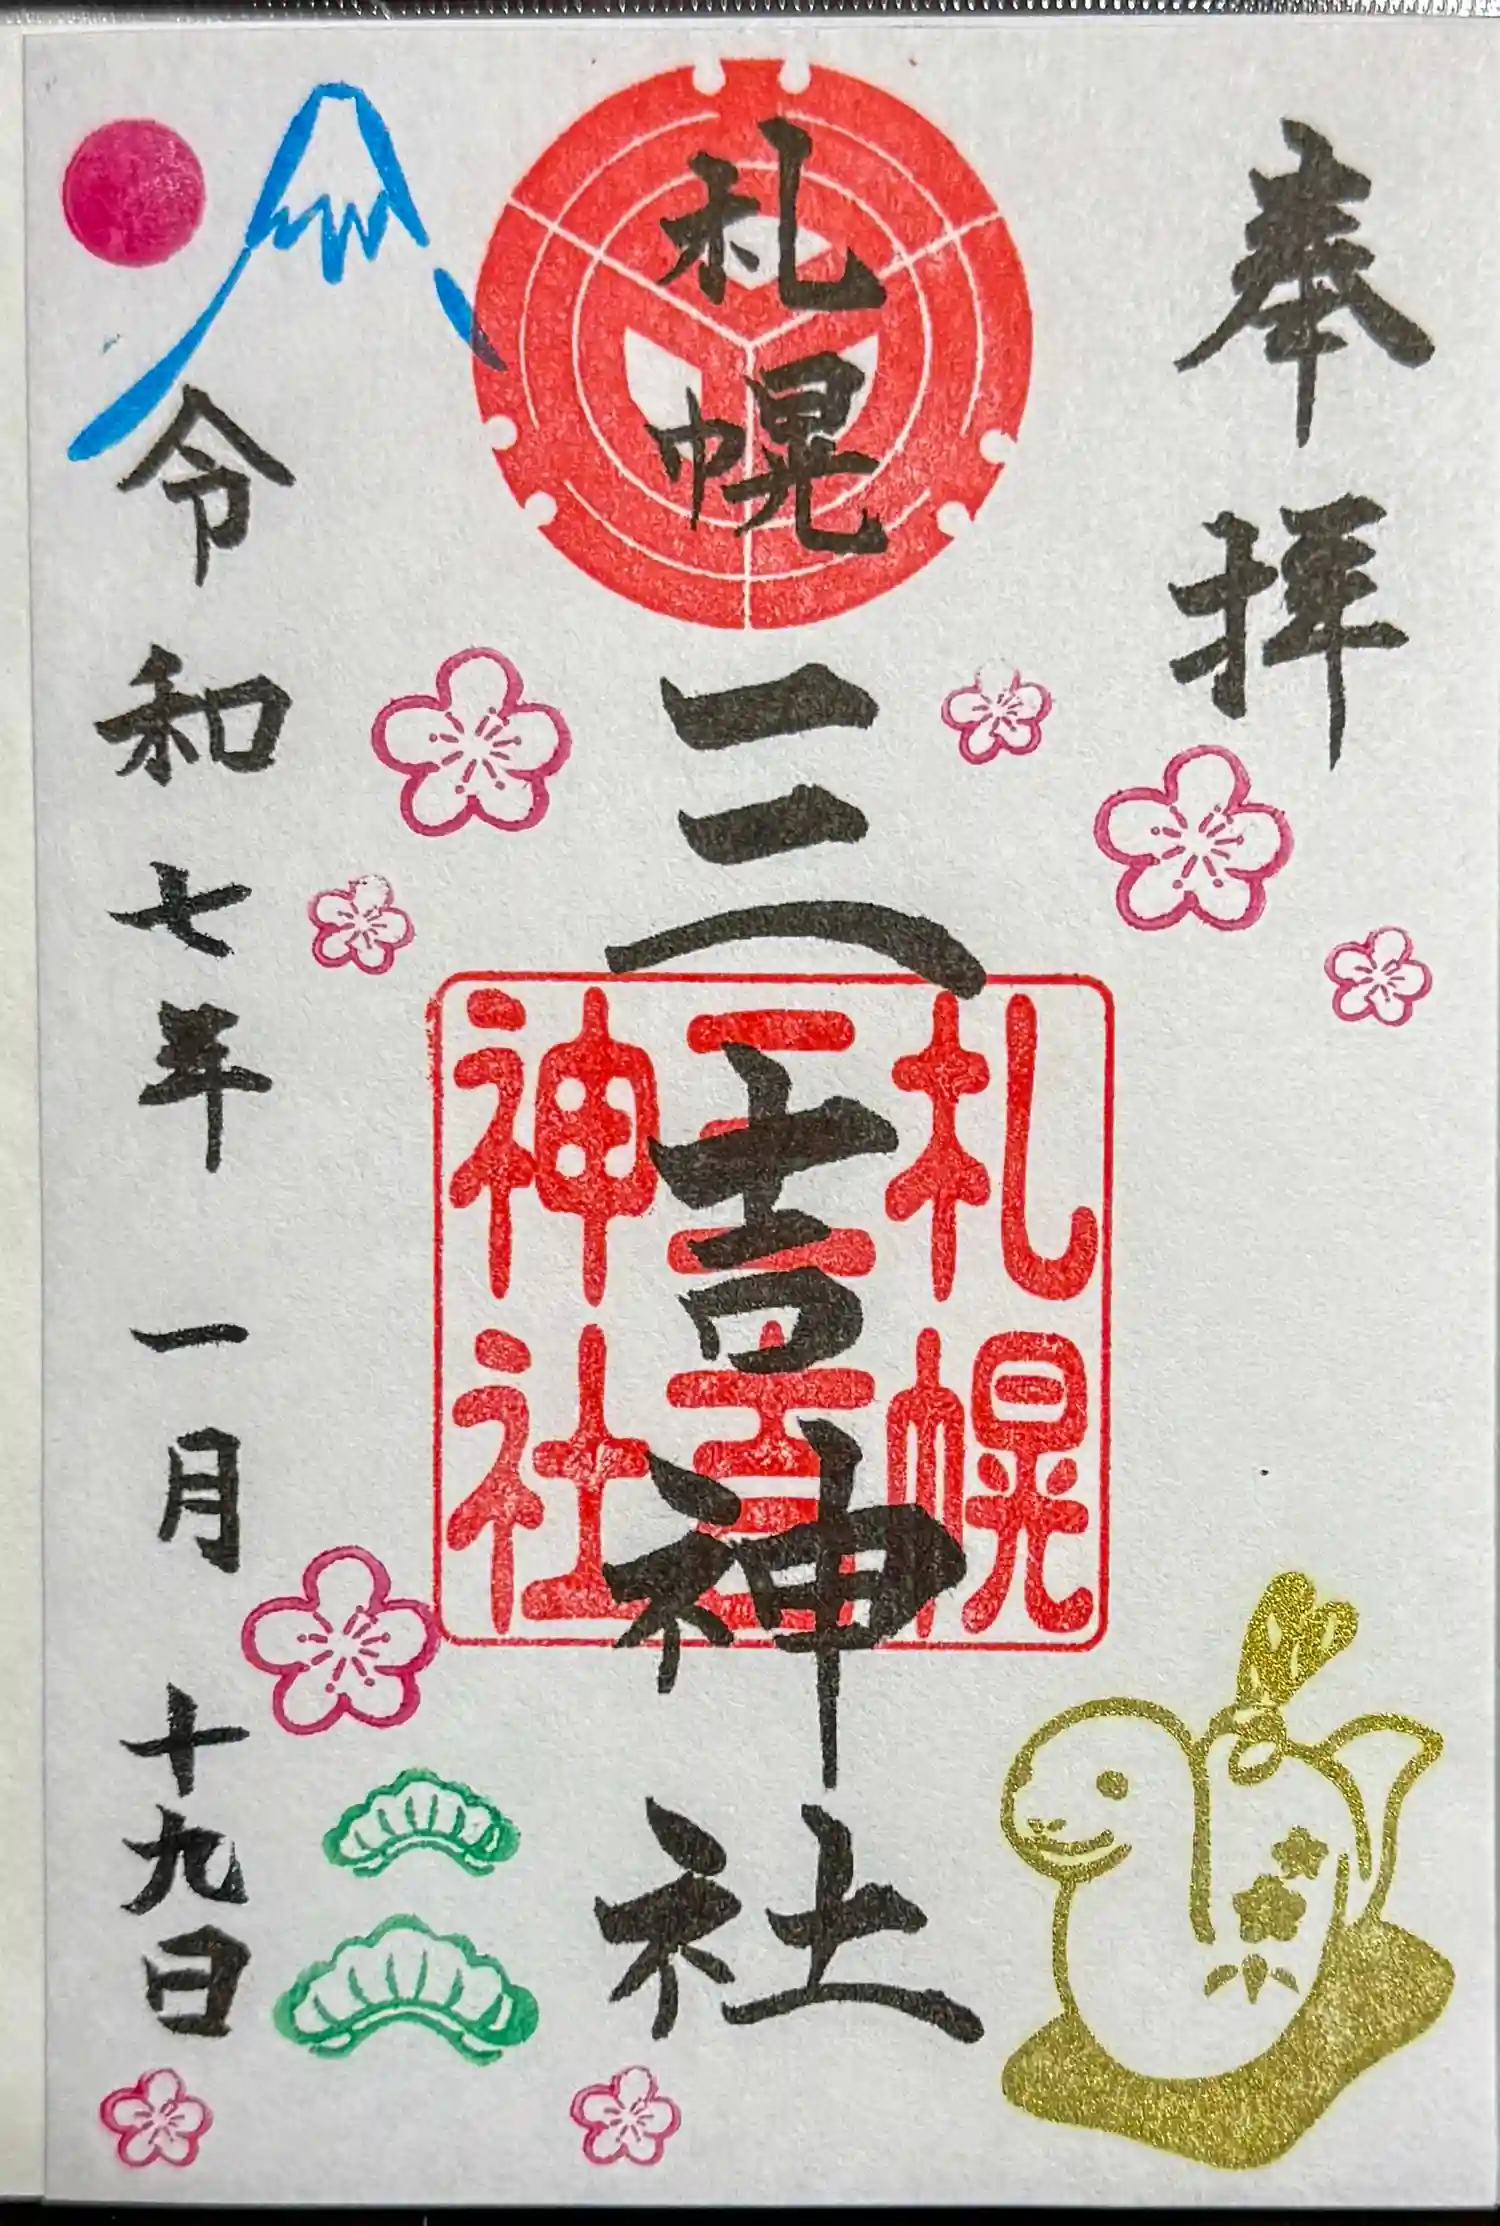 奉拝
札幌
三吉神社
札幌
三吉
神社
令和七年一月十九日